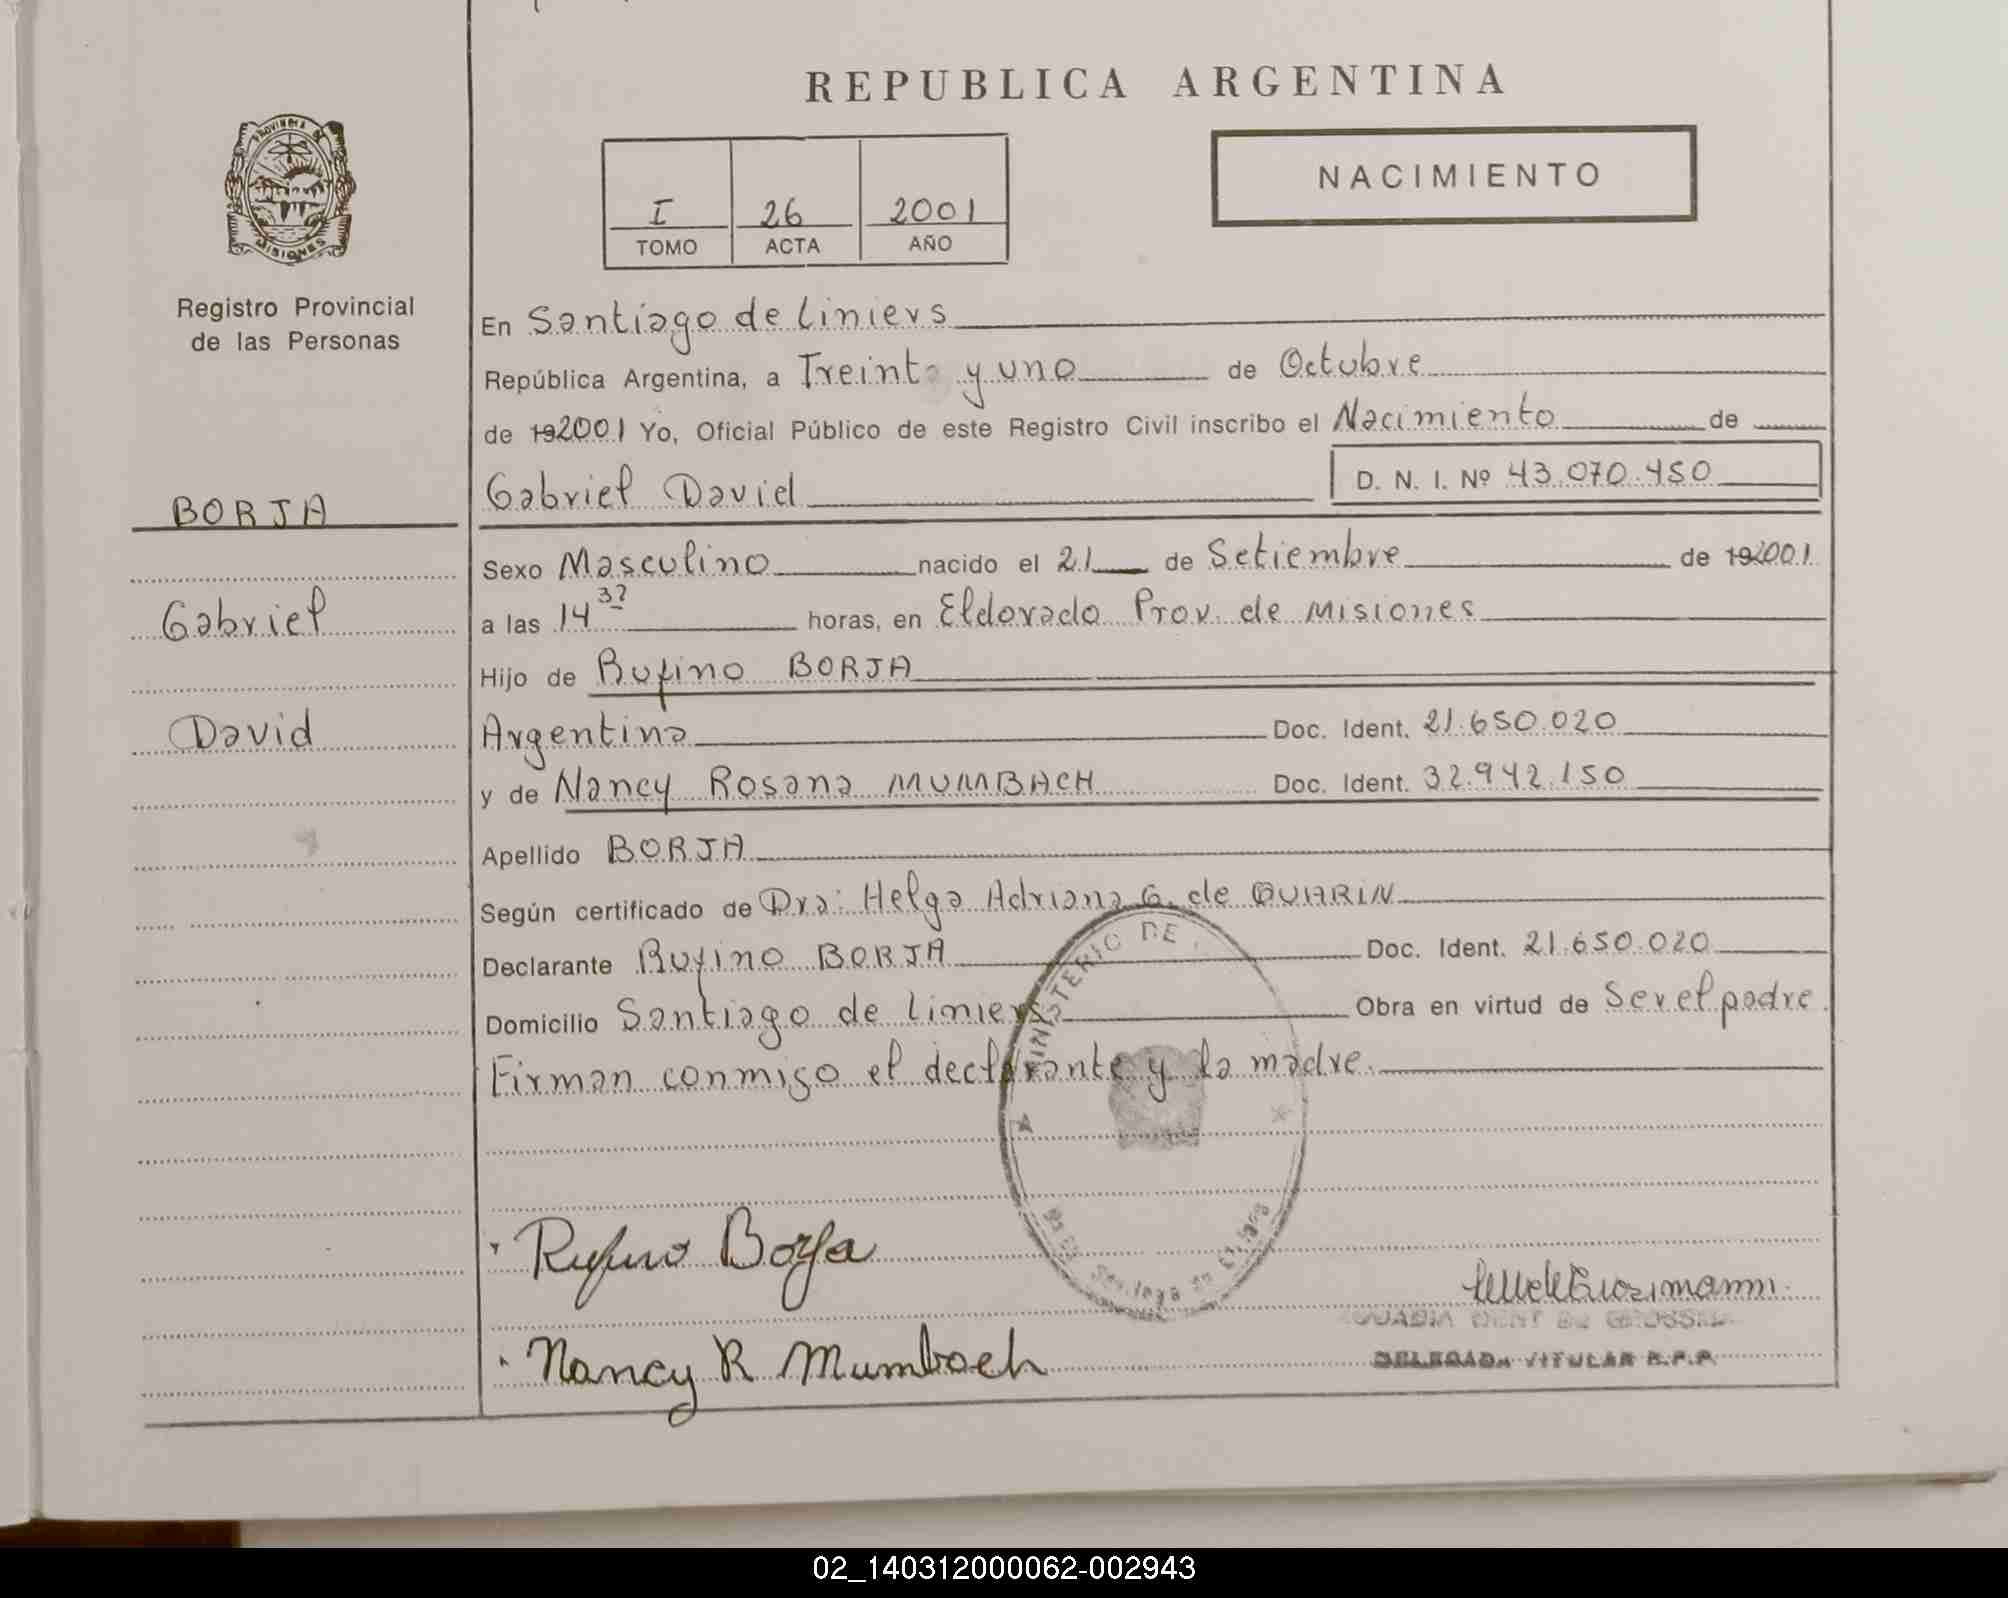 REPUBLICA ARGENTINA
PROVINCIA DE
MISIONES
Registro Provincial
de las Personas
I 26 2001
TOMO ACTA AÑO
NACIMIENTO
En Santiago de Liniers
República Argentina, a Treinta y uno de Octubre
de 192001 Yo, Oficial Público de este Registro Civil inscribo el Nacimiento de
Gabriel David D. N. I. Nº 43.070.450
BORJA
Sexo Masculino nacido el 21 de Setiembre de 192001
Gabriel
a las 14 horas, en Eldorado Prov. de Misiones
Hijo de Rufino BORJA
David
Argentina Doc. Ident. 21.650.020
y de Nancy Rosana MUMBACH Doc. Ident. 32.942.150
Apellido BORJA
Según certificado de Dra: Helga Adriana G. de QUARIN
Declarante Rufino BORJA Doc. Ident. 21.650.020
Domicilio Santiago de Liniers Obra en virtud de Ser el padre
Firman conmigo el declarante y la madre.
MINISTERIO DE
Rufino Borja
Nancy R Mumbach
DELEGADA TITULAR R.P.P.
02_140312000062-002943